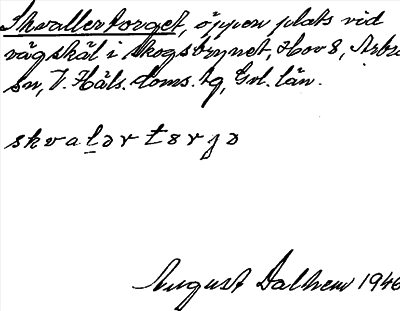 Skvallertorget, öppen plats vid
vägskäl i skogsbrynet, Hov 8, Arbrå
sn, V. Häls. doms. tg, Gvl. län.
skvalərtɵrjə
August Dalhem 1946